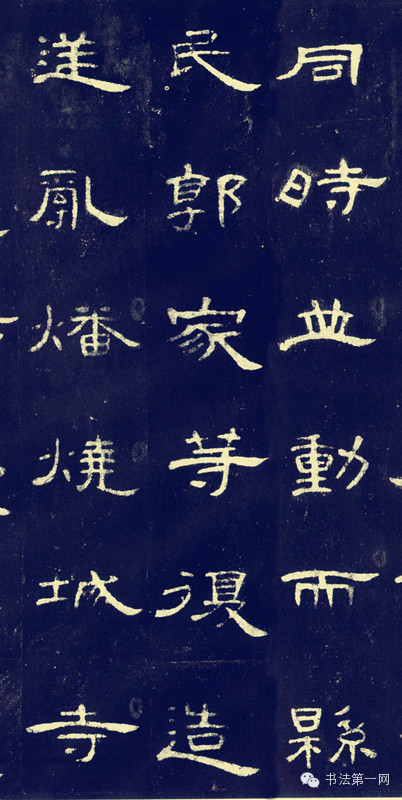 同時並動而縣
民郭家等復造
逆亂燔燒城寺
书法第一网